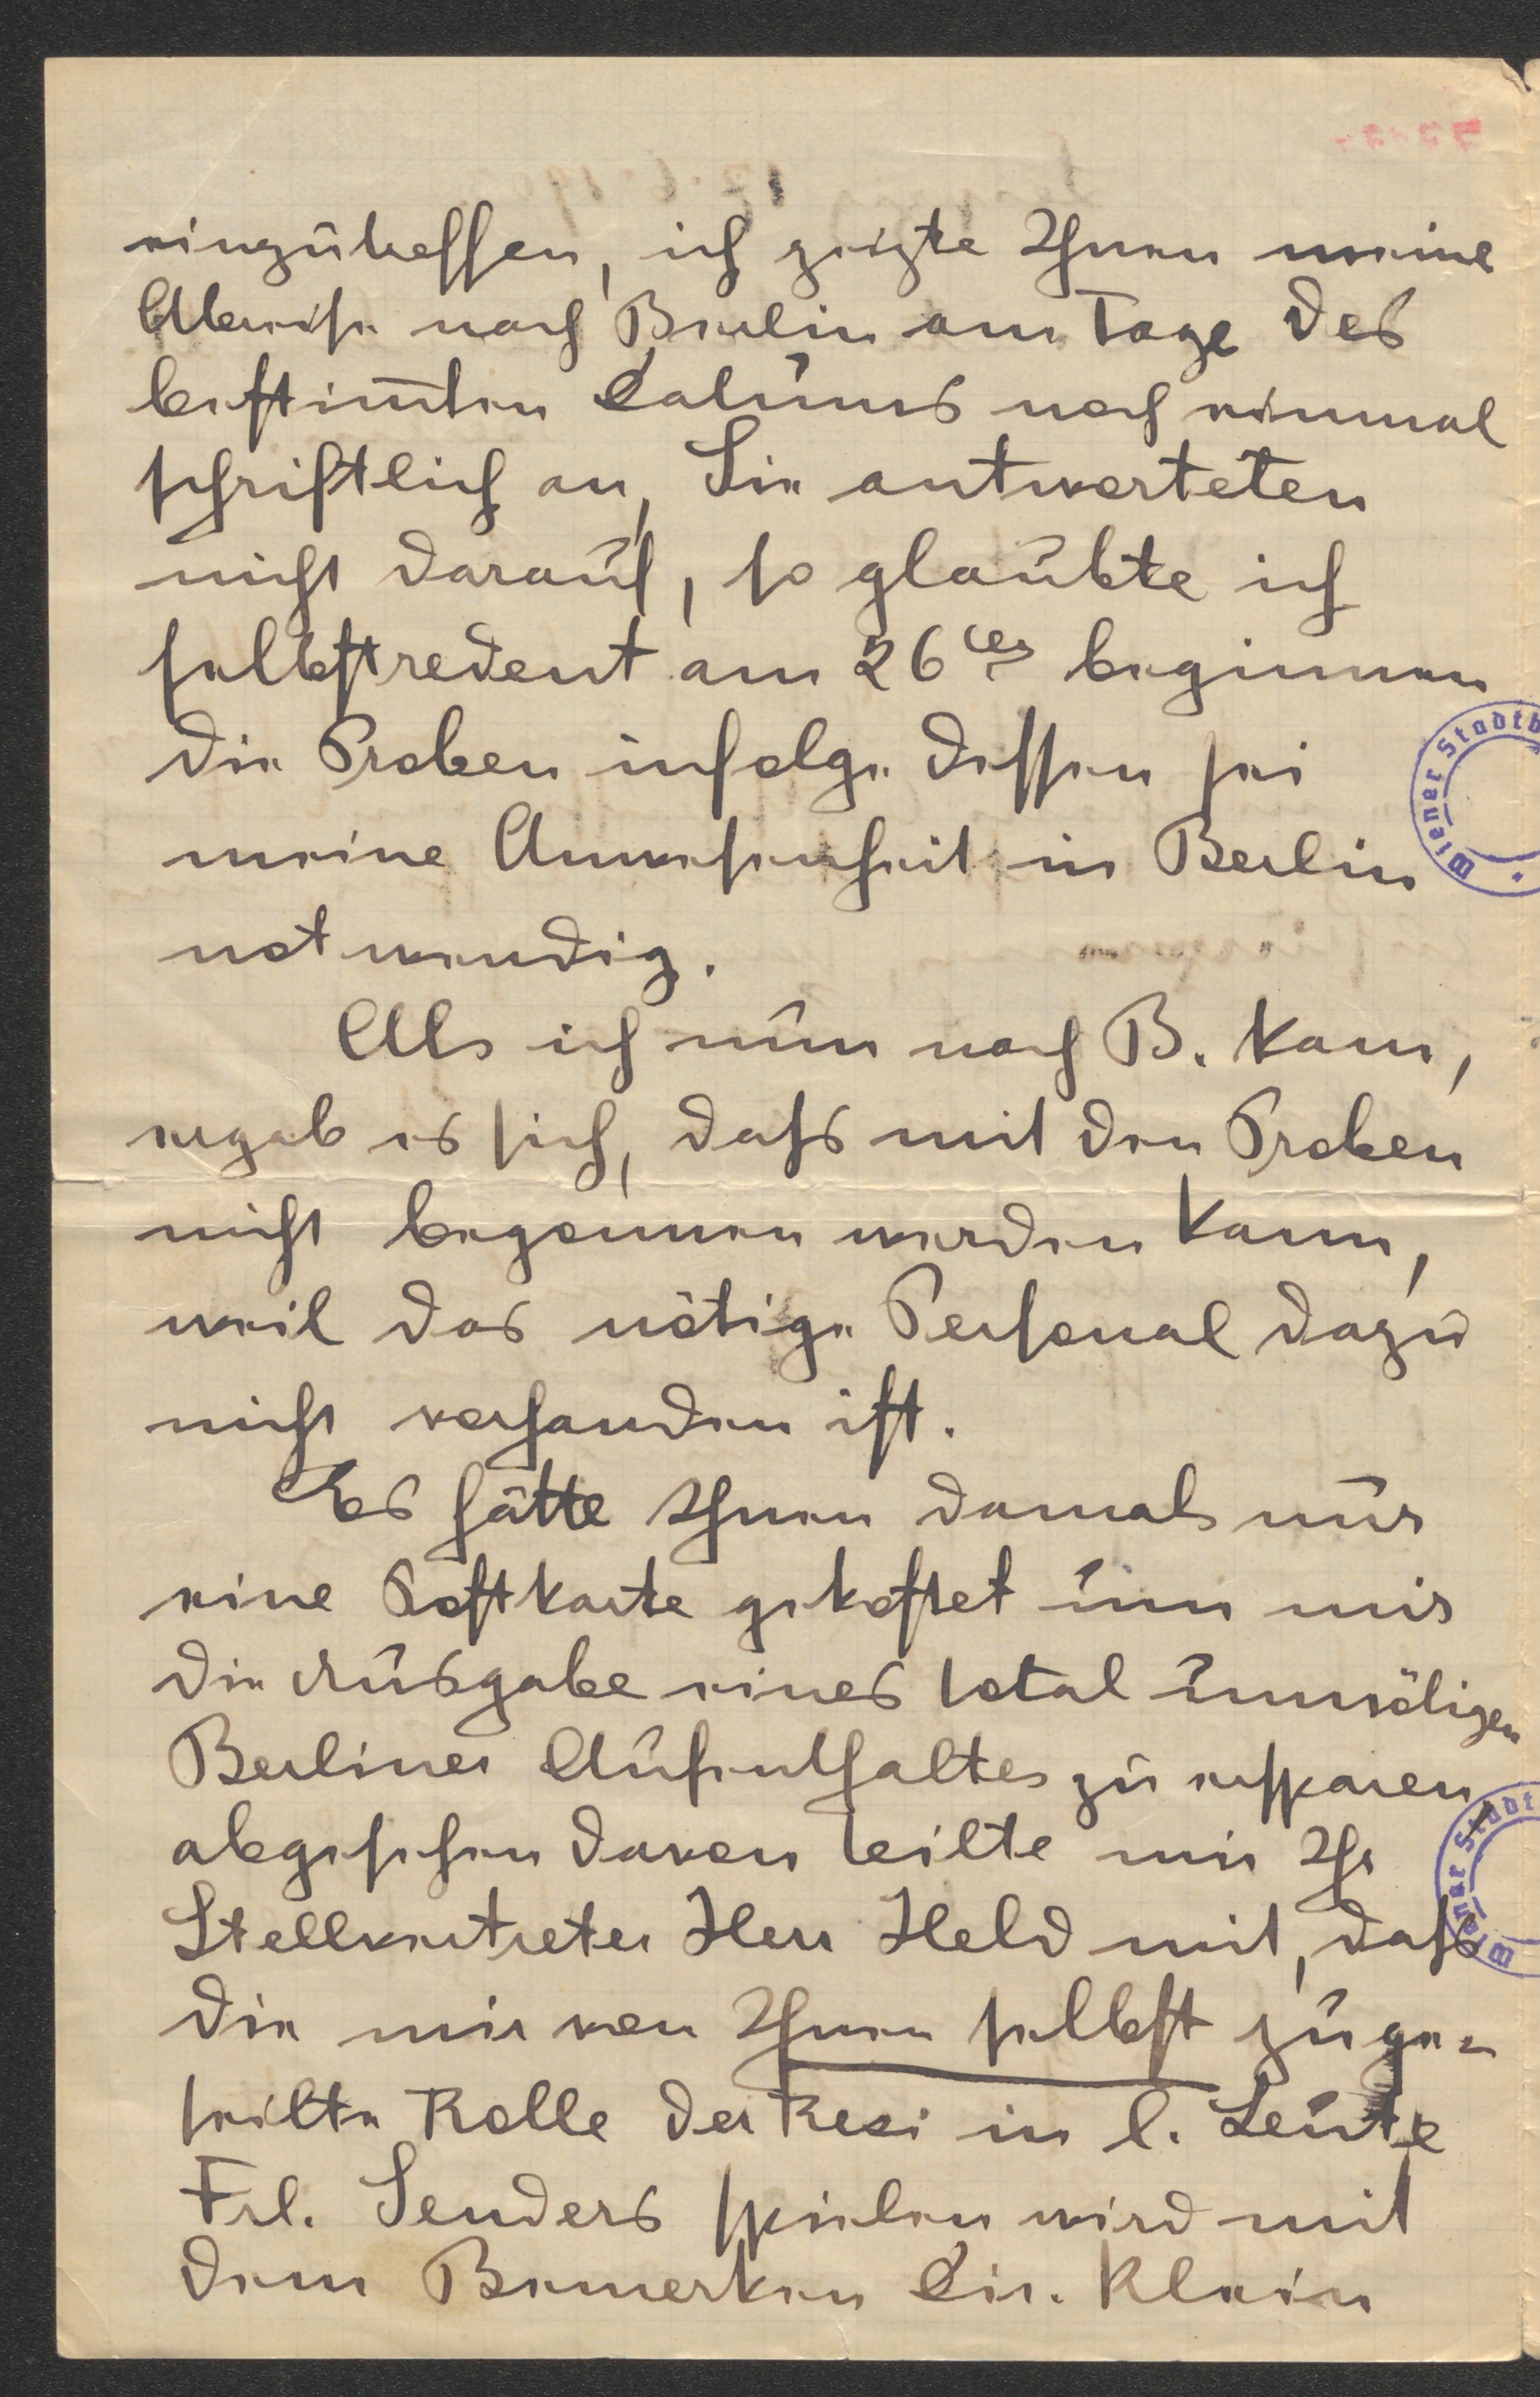 einzutreffen, ich zeigte Ihnen meine
Abreise nach Berlin am Tage des
bestim̄ten Datums noch einmal
schriftlich an, Sie antworteten
nicht darauf, so glaubte ich
selbstredent am 26ten beginnen
die Proben infolge dessen sei
meine Anwesenheit in Berlin
notwendig.
Als ich nun nach B. kam,
ergab es sich, dass mit den Proben
nicht begonnen werden kann,
weil das nötige Personal dazu
nicht vorhanden ist.
Es hätte Ihnen damals nur
eine Postkarte gekostet um mir
die Ausgabe eines total unnötigen
Berliner Aufenthaltes zu ersparen,
abgesehen davon teilte mir Ihr
Stellvertreter Herr Held mit, dass
die mir von Ihnen selbst zuge=
teilte Rolle der Resi in l. Leute
Frl. Senders spielen wird mit
dem Bemerken Dir. Klein
Wiener Stadtb
Wiener Stadt